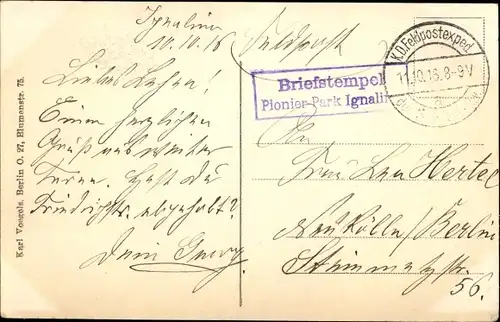 Ignalino
10.10.16
Feldpost
K.D. Feldpostexped.
11.10.16. 8-9V
Briefstempel
Pionier-Park Ignalin
Karl Voegels, Berlin O. 27, Blumenstr. 75.
Liebes Lenchen!
Einen herzlichen
Gruß aus weiter
Ferne. Hast du
Friedrichs abgeholt?
Dein Georg.
An
Frau Lena Hertel
Neukölln/Berlin
Steinmetzstr.
56.